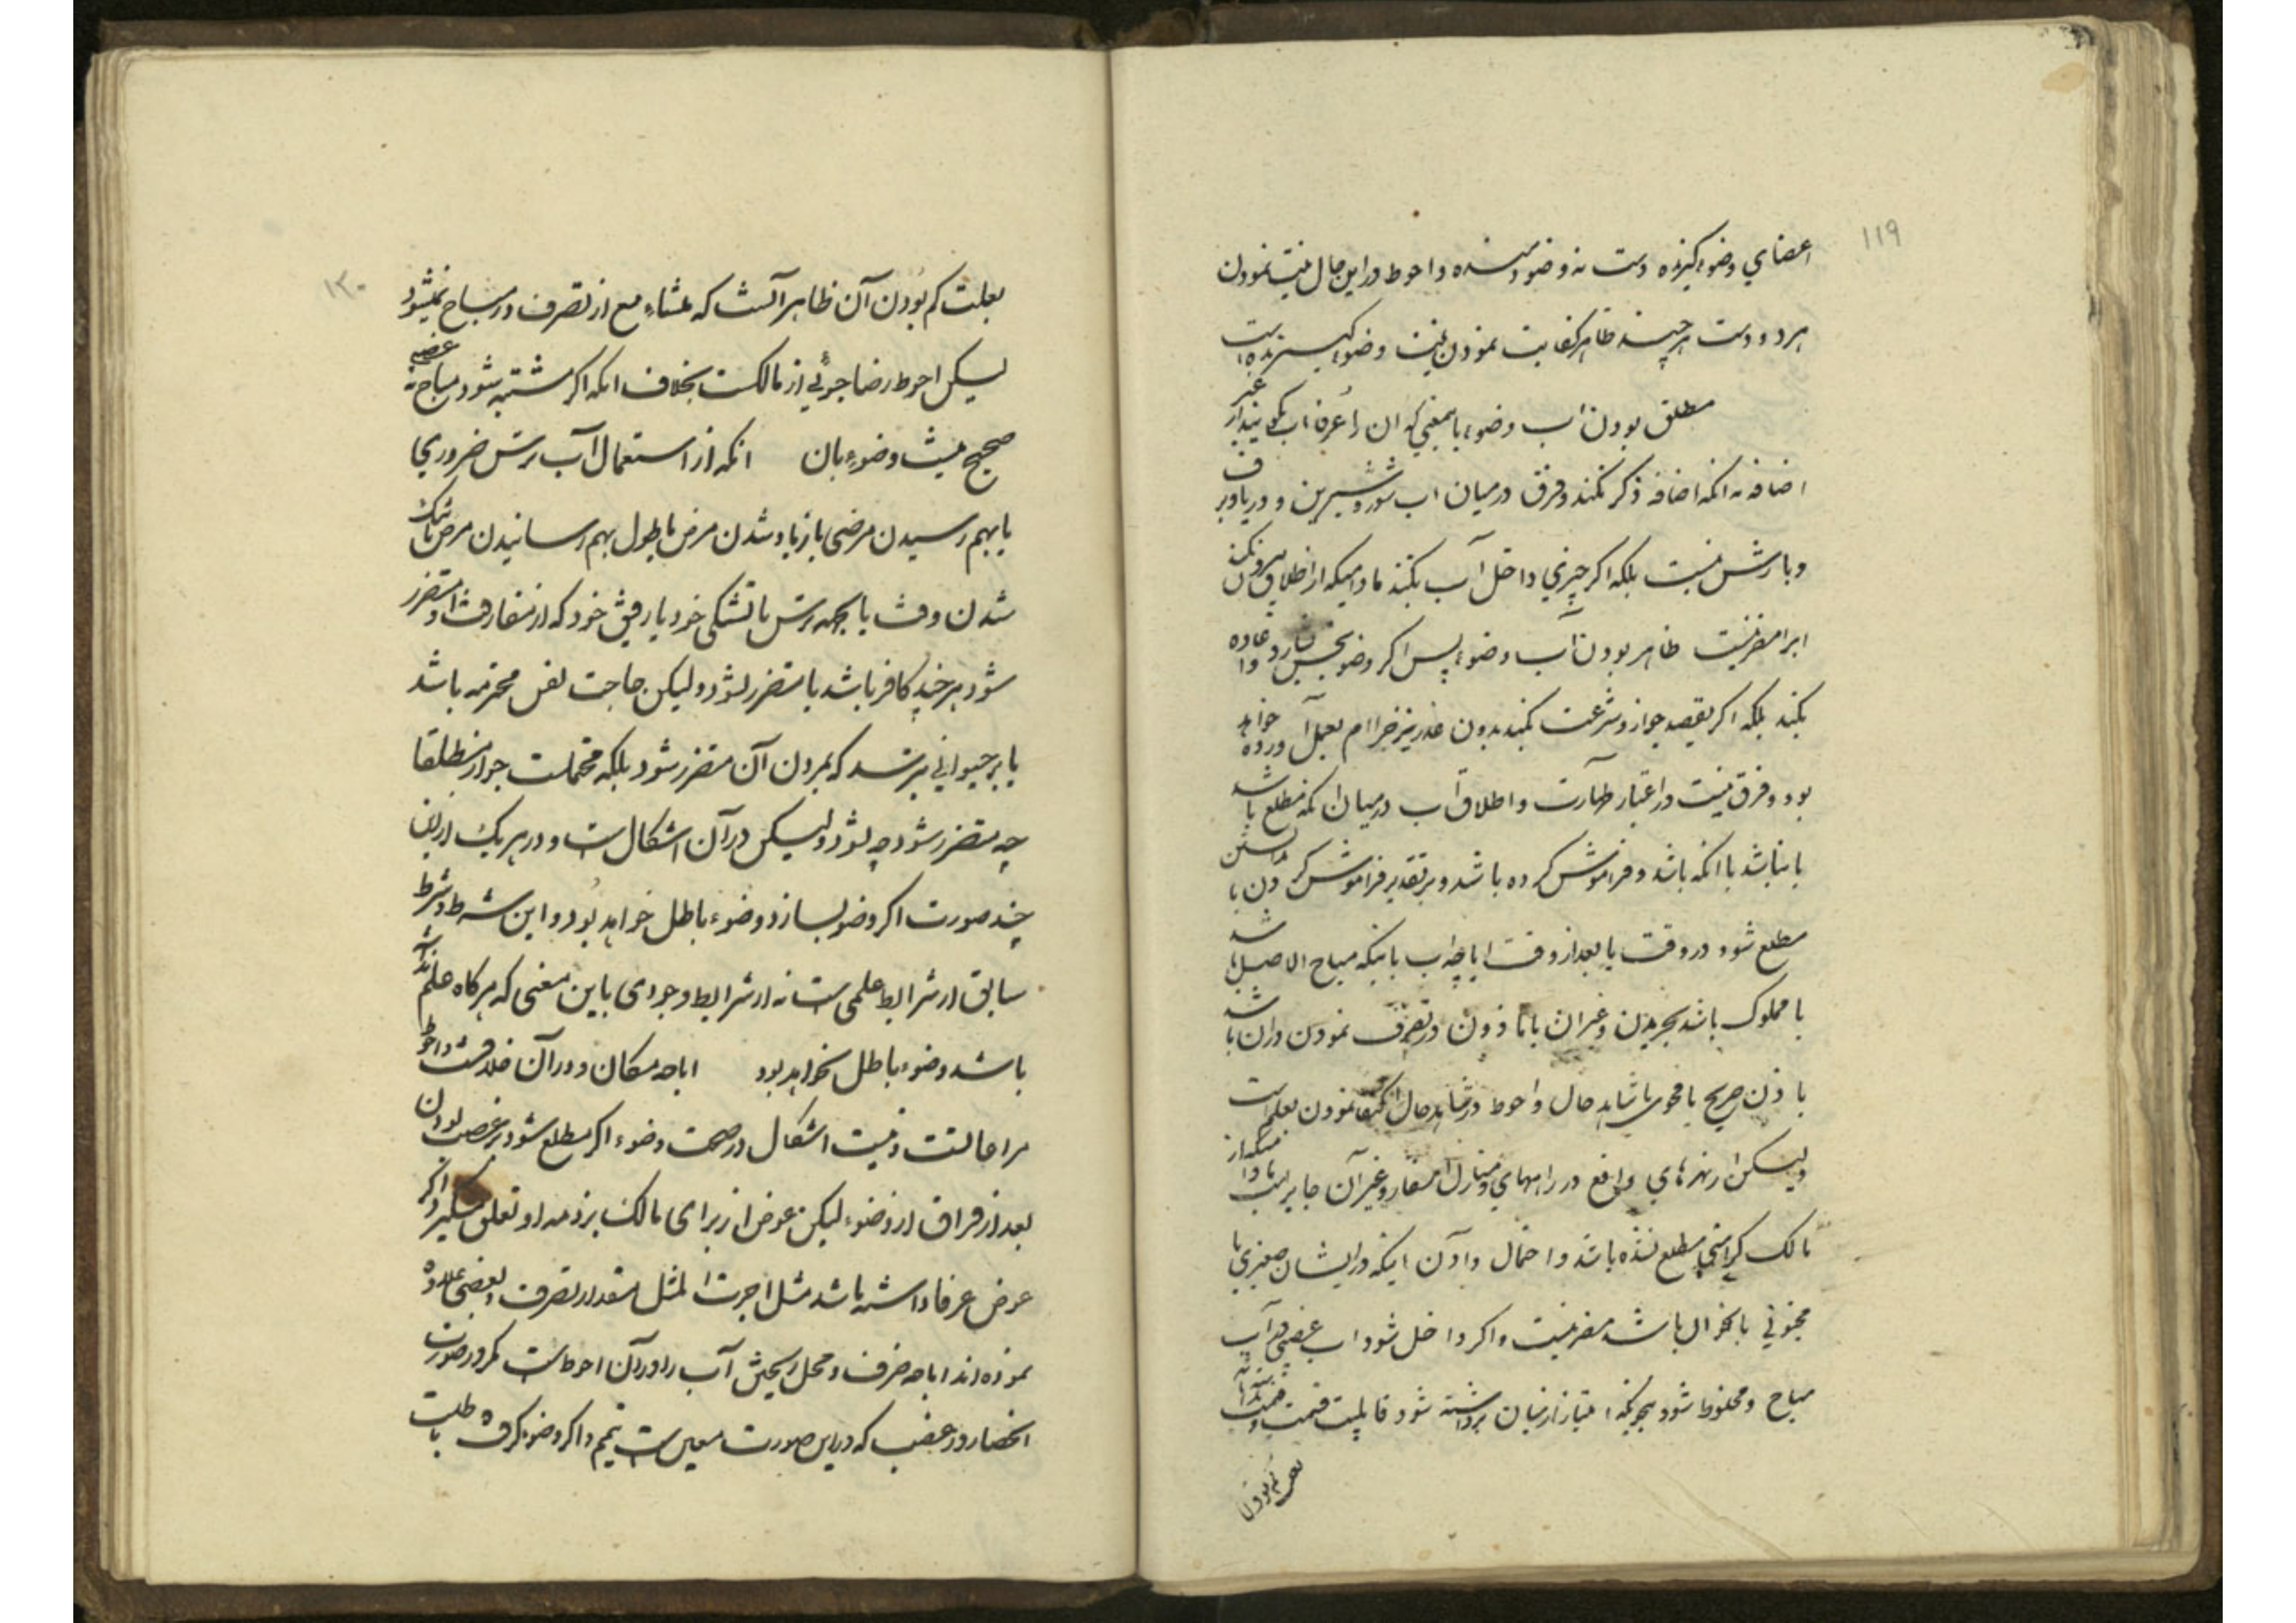 ۱۱۹
اعضاي وضوء گیرنده دست نه وضو دهنده و احوط در این حال نیت نمودن
هر دو دست هر چند ظاهر کفایت نمودن نیت وضوء گیرنده است
مطلق بودن اب وضوء باینمعني که ان را عرفا اب گویند بغیر از
اضافه نه انکه اضافه ذکر نکند و فرق در میان اب شور و شیرین و دریا و برف
و بارش نیست بلکه اگر چیزي داخل آب بکنند مادامیکه از اطلاق بیرون نکند
ابرا مضر نیست طاهر بودن آب وضوء پس اگر وضو بنجس بسازد اعاده
بکند بلکه اگر بقصد جواز و شرعیت بکند بدون عذر نیز حرام بعمل آورده خواهد
بود و فرق نیست در اعتبار طهارت و اطلاق آب در میان انکه مطلع باشد
یا نباشد یا انکه باشد و فراموش کرده باشد و بر تقدیر فراموش کردن یا
مطلع شود در وقت یا بعد از وقت اباحه اب باینکه مباح الاصل باشد
یا مملوک باشد بخریدن و غیر ان یا ماذون در تصرف نمودن در ان باشد
باذن صریح یا فحوی یا شاهد حال و احوط در شاهد حال اکتفا نمودن بعلم است
ولیکن از نهرهاي واقع در راههاي و منازل اسفار و غیر آن جایز است مادامیکه از
مالک کراهتي مطلع نشده باشد و احتمال دادن اینکه در ایشان صغیري یا
مجنوني باشد مضر نیست و اگر داخل شود اب غصبي در آب
مباح و مخلوط شود بنحویکه امتیاز از میان برداشته شود قابلیت قسمت
بعلت کم بودن
۱۲۰
بعلت کم بودن آن ظاهر آنست که منشاء منع از تصرف در مباح نمیشود
لیکن احوط رضا جوئي از مالکست بخلاف انکه اگر مشتبه شود مباح به غصبي
صحیح نیست وضوء بان انکه از استعمال آب نترسد ضرري
یا بهم رسیدن مرضی یا زیاد شدن مرض یا طول بهم رسانیدن مرض یا تنک
شدن وقت یا بجهه ترس یا تشنکی خود یا رفیق خود که از مفارقت او متضرر
شود هر چند کافر باشد یا متضرر نشود ولیکن صاحب نفس محترمه باشد
یا بر حیواني بترسد که بمردن آن متضرر شود بلکه محتملست جواز مطلقا
چه متضرر شود چه نشود ولیکن در آن اشکال است و در هر یک از این
چند صورت اگر وضو بسازد وضوء باطل خواهد بود و این شرط و شرط
سابق از شرایط علمی است نه از شرایط وجودی باین معنی که هر گاه علم نداشته
باشد وضوء باطل نخواهد بود اباحه مکان و در آن خلافست و احوط
مراعاتست و نیست اشکال در صحت وضوء اگر مطلع شود بر غصب بودن
بعد از فراق از وضوء لیکن عوض از برای مالک بر ذمه او تعلق میگیرد اگر
عوض عرفا داشته باشد مثل اجرت المثل بقدر تصرف و بعضی علاوه
نموده اند اباحه ظرف و محل ریختن آب را و در آن احوط است مگر در صورت
انحصار در غصب که در این صورت معین است تیمم و اگر وضو بگیرد باطلست